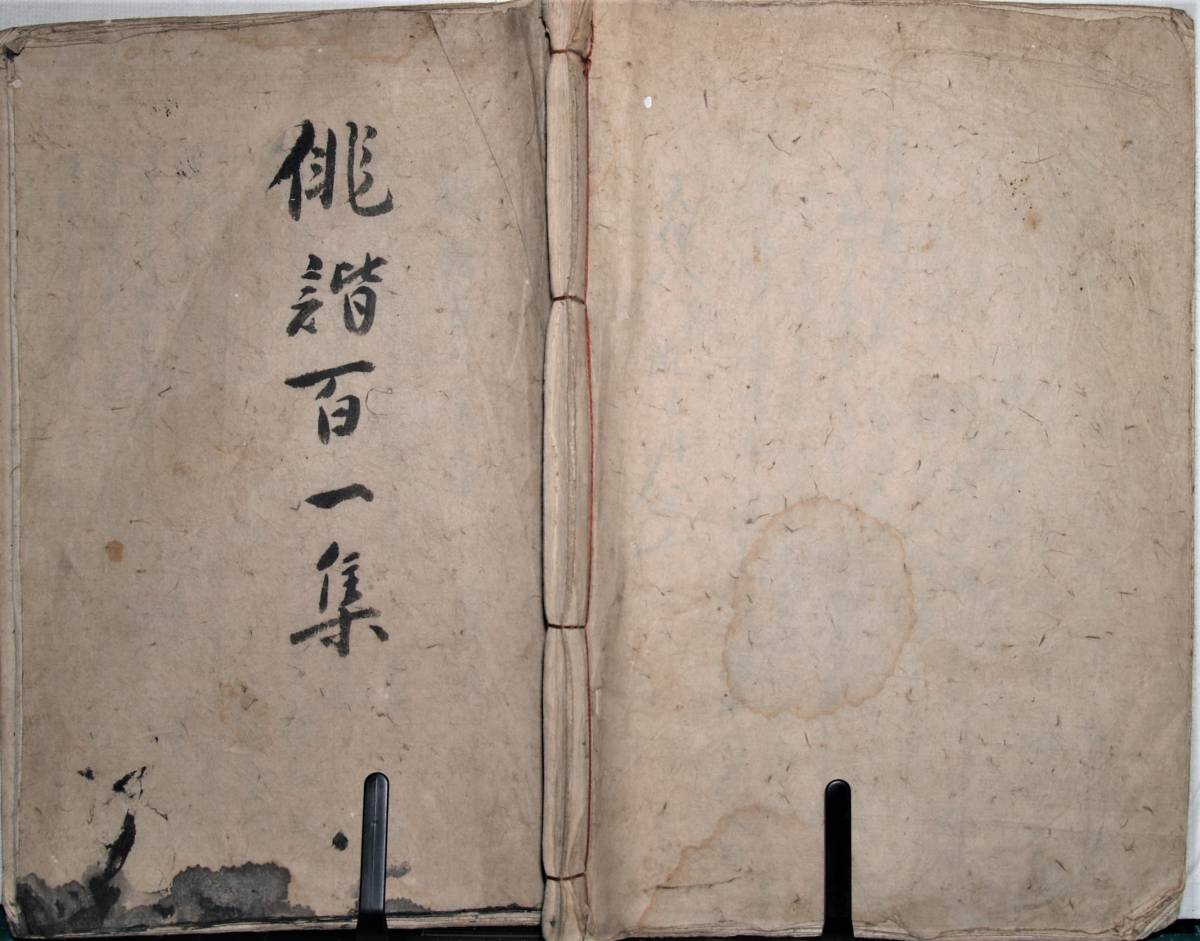 俳諧百一集